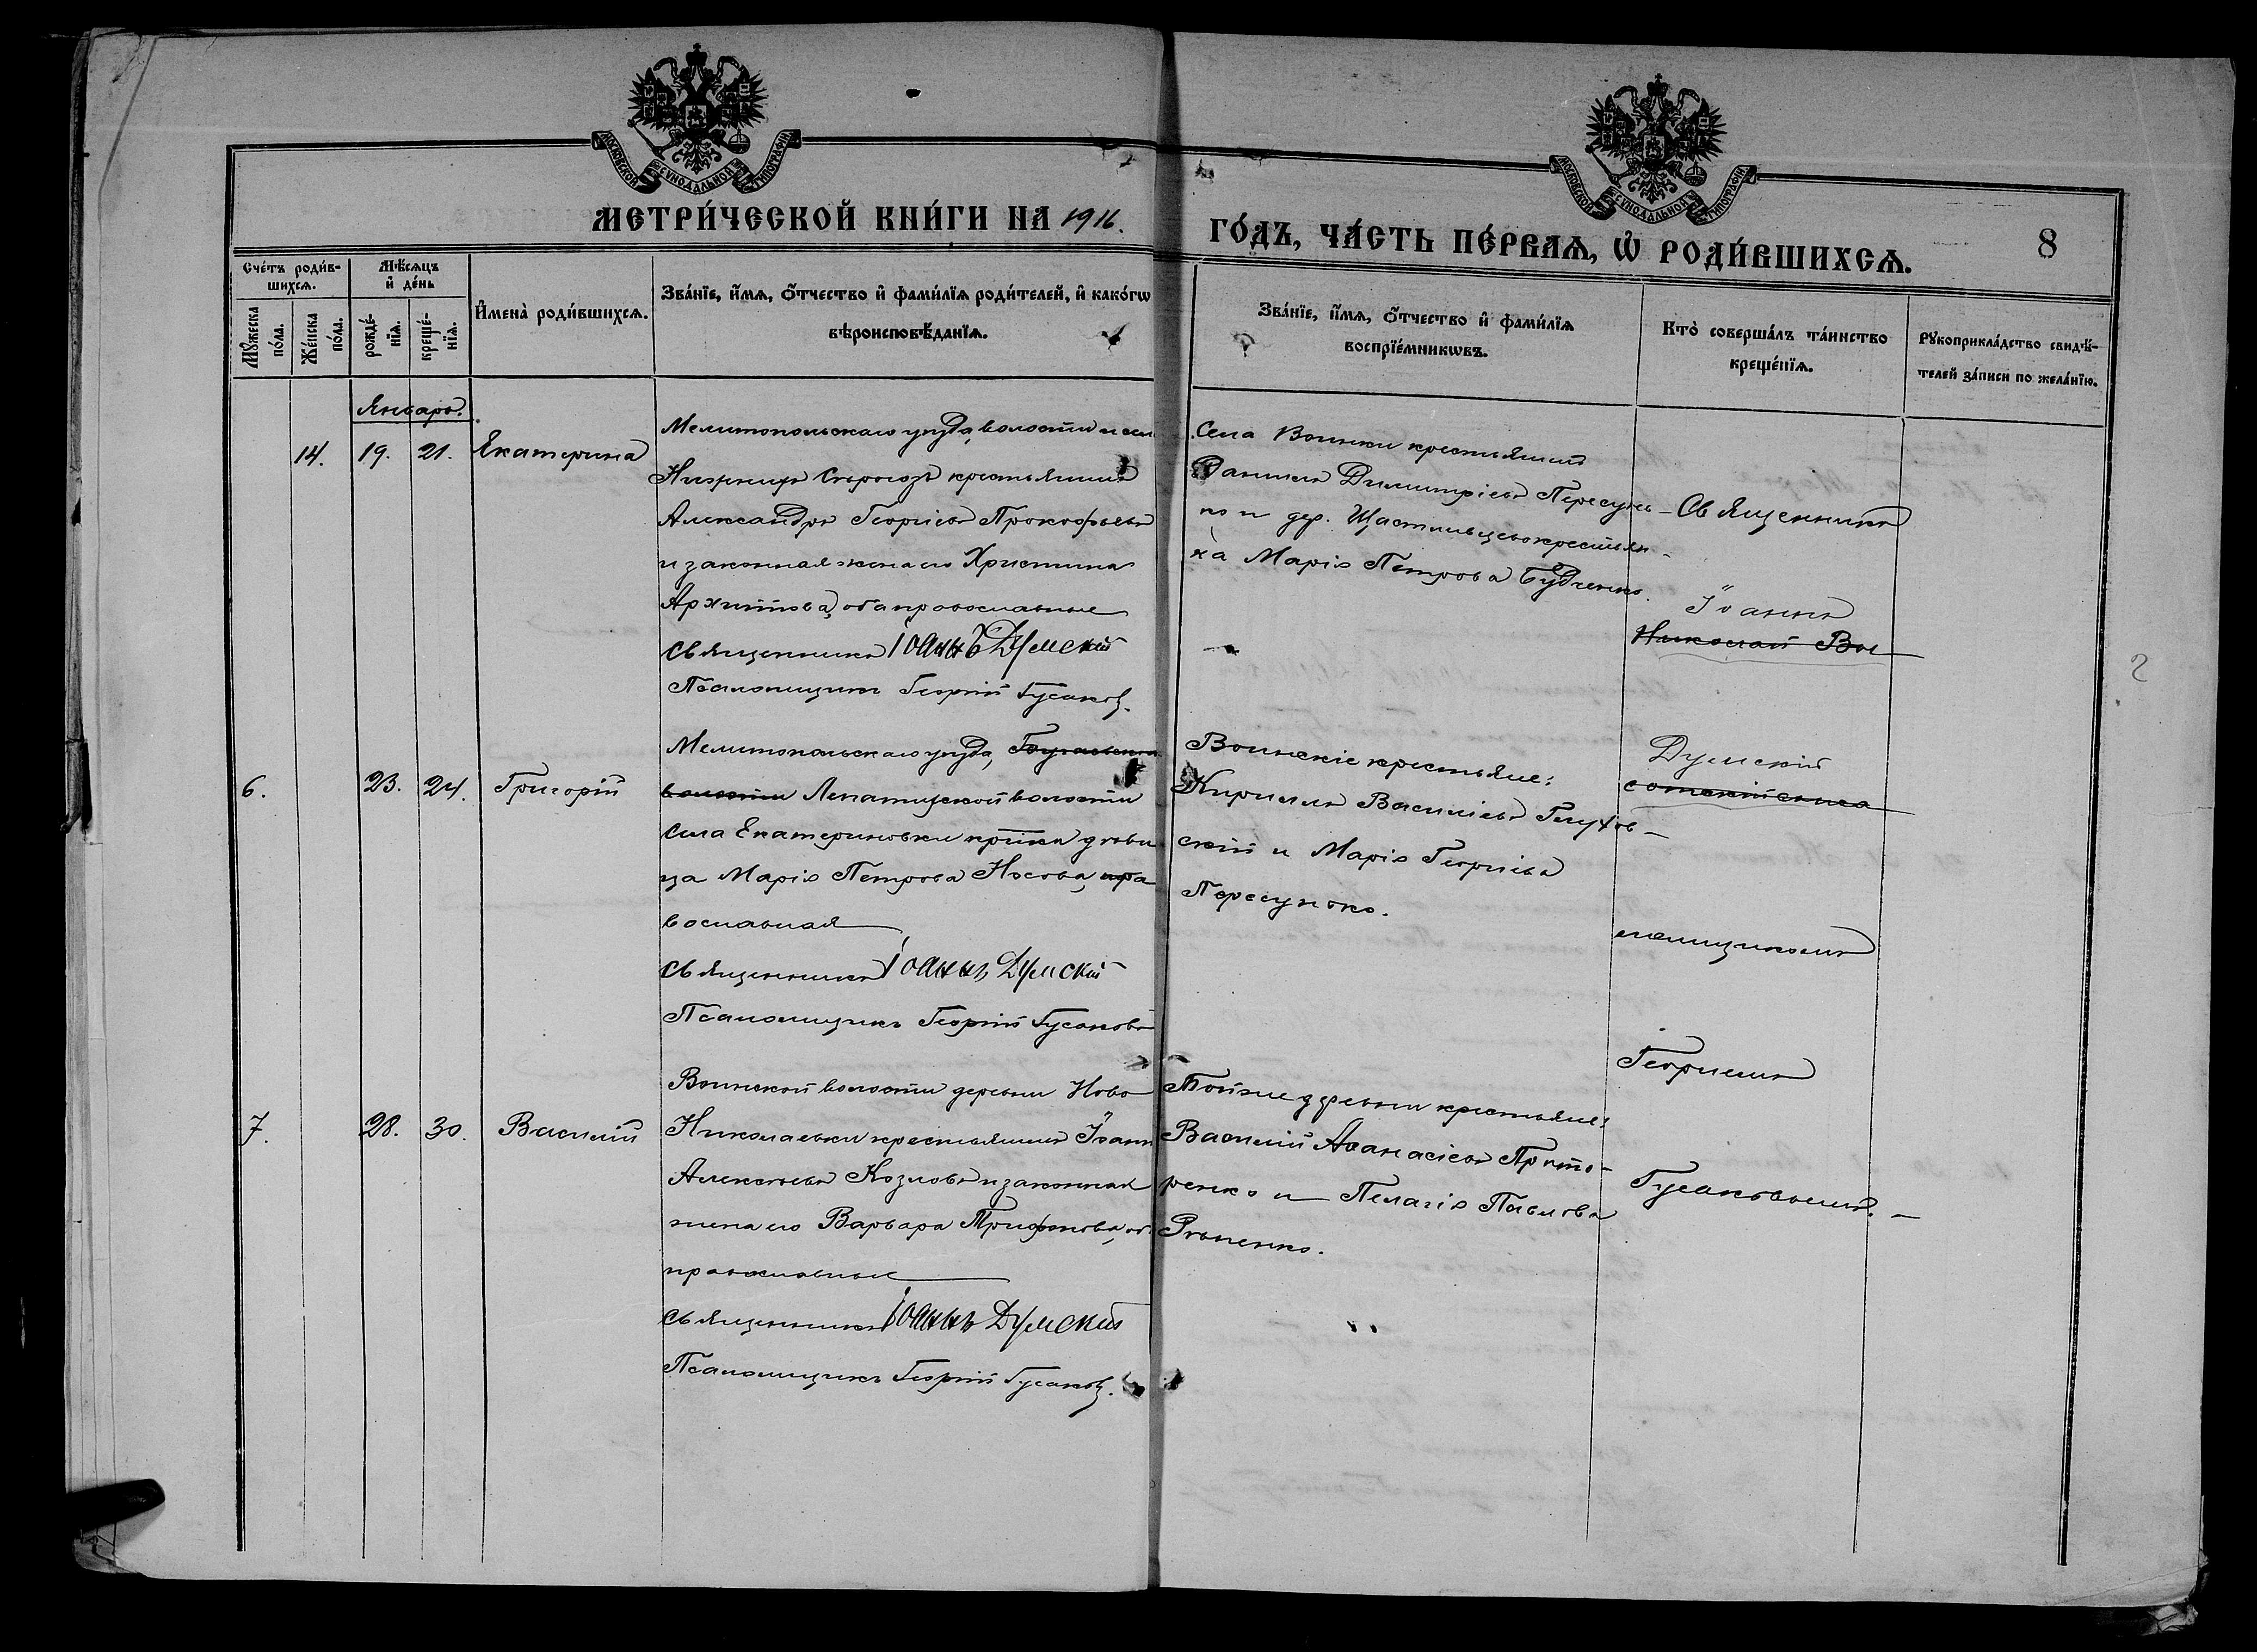 МОСКОВСКОЙ СѴНОДАЛЬНОЙ ТИПОГРАФІИ
МОСКОВСКОЙ СѴНОДАЛЬНОЙ ТИПОГРАФІИ
МЕТРИ́ЧЕСКОЙ КНИ́ГИ НА 1916.
ГО́ДЪ, ЧА́СТЬ ПЕ́РВАѦ, Ѡ҆ РОДИ́ВШИХСѦ.
8
Сче́тъ роди́в-
шихсѧ.
Мꙋ́жеска
по́ла.
Же́нска
по́ла.
Мѣ́сѧцъ
и҆ де́нь
рожде́-
нїѧ.
креще́-
нїѧ.
И҆мена̀ роди́вшихсѧ.
Зва́нїе, и҆́мѧ, ѻ҆́тчество и҆ фами́лїѧ роди́телей, и҆ како́гѡ
вѣроисповѣ́данїѧ.
Зва́нїе, и҆́мѧ, ѻ҆́тчество и҆ фами́лїѧ
воспрїе́мникѡвъ.
Кто̀ соверша́лъ та́инство
креще́нїѧ.
Рꙋкоприкла́дство свидѣ́-
телей за́писи по жела́нїю.
Январь.
14. 19. 21. Екатерина
Мелитопольскаго уѣзда, волости и сел
Нижнихъ Сѣрогозъ крестьянинъ
Александръ Георгіевъ Прокофьевъ
и законная жена его Христина
Архипова, оба православные
Священникъ Іоаннъ Думскій
Псаломщикъ Георгій Гусаковъ.
Села Воинки крестьянинъ
Даніилъ Димитріевъ Пересунь-
ко и дер. Щастливцево крестьян-
ка Марія Петрова Будченко.
Священникъ
Іоаннъ
Николай Вос
6. 23. 24. Григорій
Мелитопольскаго уѣзда,
волости Лепатихской волости
села Екатериновки кр-ка дѣви
ца Марія Петрова Носова, пра
вославная
Священникъ Іоаннъ Думскій
Псаломщикъ Георгій Гусаковъ
Воинскіе крестьяне:
Кириллъ Васильевъ Глухов-
скій и Марія Георгіева
Пересунько.
Думскій
съ псал
омщикомъ
Георгіемъ
Гусаковымъ. —
7. 28. 30. Василій
Воинской волости деревни Ново
Николаевки крестьянинъ Іоанн
Алексѣевъ Козловъ и законная
жена его Варвара Трифонова, об
православные
Священникъ Іоаннъ Думскій
Псаломщикъ Георгій Гусаковъ.
Той же деревни крестьяне:
Василій Аѳанасіевъ Прито-
ренко и Пелагія Павлова
Рябченко.
2